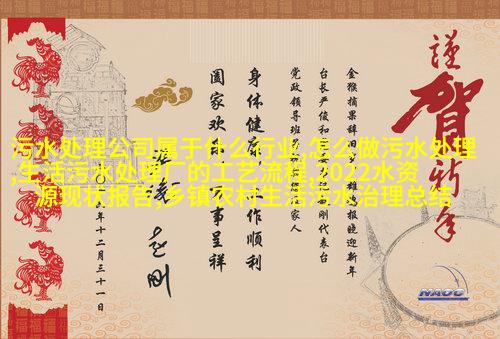 污水处理公司属于什么行业,怎么做污水处理
,生活污水处理厂的工艺流程,2022水资
源现状报告,乡镇农村生活污水治理总结
謹賀新年
金猴摘果辞旧 雄鸡报晓迎新年
台长严俊和 刚代表台
党政领导班 家人
身体健康 工作顺利
阖家欢乐 万事呈祥
年十二月三十一日
NAOC